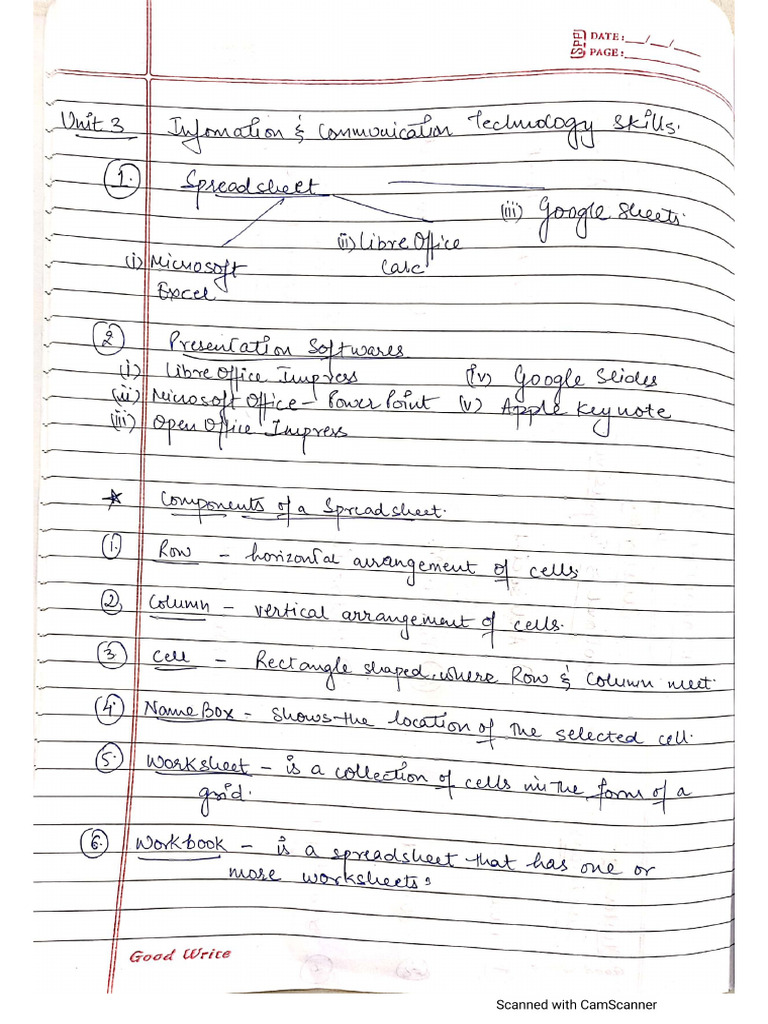 SPP DATE:__/__/__
PAGE:______
Unit 3 Infomation & Communication Technology Skills.
1. Spreadsheet
(iii) Google Sheets.
(ii) Libre Office
Calc
(i) Microsoft
Excel
2 Presentation Softwares
(i) Libre Office Impress (iv) Google Slides
(ii) Microsoft Office - Power Point (v) Apple Keynote
(iii) Open Office Impress
* Components of a Spreadsheet.
1. Row - horizontal arrangement of cells
2 Column - vertical arrangement of cells.
3. Cell - Rectangle shaped, where Row & Column meet.
4. Name Box - shows the location of the selected cell.
5. Worksheet - is a collection of cells in the form of a
grid.
6. Workbook - is a spreadsheet that has one or
more worksheets.
Good Write
Scanned with CamScanner